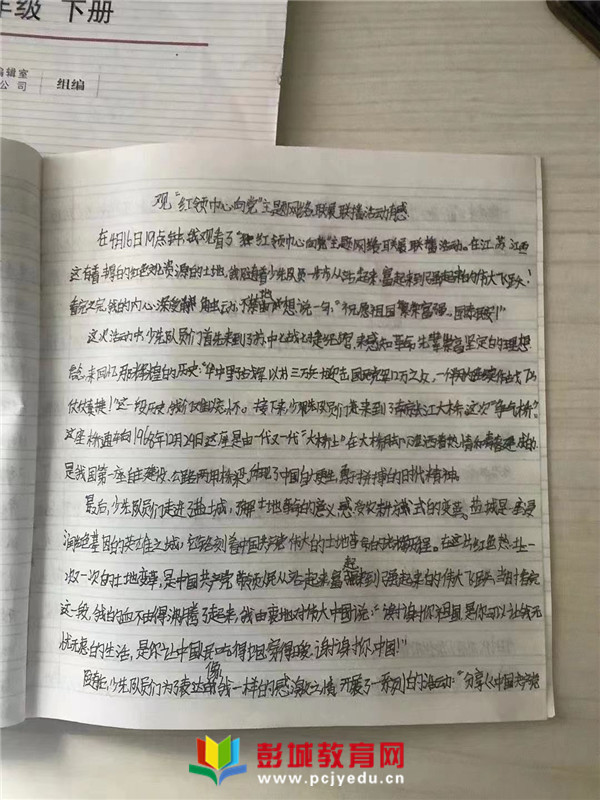 年级 下册
编辑室
公司
组编
观“红领巾心向党”主题网络联展联播活动有感
在4月16日19点钟,我观看了“红领巾心向党”主题网络联展联播活动。在江苏江西
这有着丰富的红色文化资源的土地,我跟随着少先队员一步步从站起来,富起来到强起来的伟大飞跃!
看完之后,我的内心深受触动,不禁由衷地想说一句:“祝愿祖国繁荣富强。国泰民安!”
这次活动中,少先队员们首先来到了苏中七战七捷纪念馆,来感知革命先辈崇高坚定的理想
信念,来回忆那辉煌的历史:“华中野战军以3万兵力迎击国民党军12万之众,一个半月连续作战
这一段历史,我们又怎能忘怀。接下来,少先队员们走来到了南京长江大桥,这次“争气桥”。
这座桥通车自1968年12月29日这座是由一代又一代“大桥人”在大桥
是我国第一座自主建设、公路两用桥梁,体现了中国自力更生,勇于拼搏的时代精神。
最后,少先队员们走进了盐城,了解土地革命的意义,感受农耕方式的变迁。盐城是一座浸
润红色基因的英雄之城,它镌刻着中国共产党伟大的土地革命的光辉历程。在这片红色热土上一
次又一次的土地变革,是中国共产党带领人民从站起来,富起来到强起来的伟大飞跃,当时看完
这一段,我的血不由得沸腾了起来,我由衷地对伟大中国说:“谢谢你,祖国,是你可以让我无
忧无虑的生活,是你让中国人民吃得饱,穿得暖,谢谢你,中国!”
因此,少先队员们为了表达像我一样的感激之情,开展了一系列的活动:“分享《中国共产党
彭城教育网
www.pcjyedu.cn